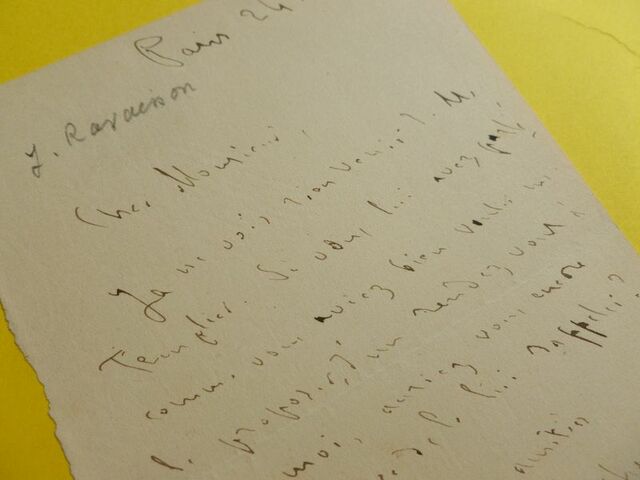 Paris 24
J. Ravaisson
Cher Monsieur,
Je ne vois rien venir de M.
Templier. Si vous lui avez parlé,
comme vous aviez bien voulu me
le proposer, un rendez vous à
moi, auriez vous encore
de le lui rappeler?
amitiés